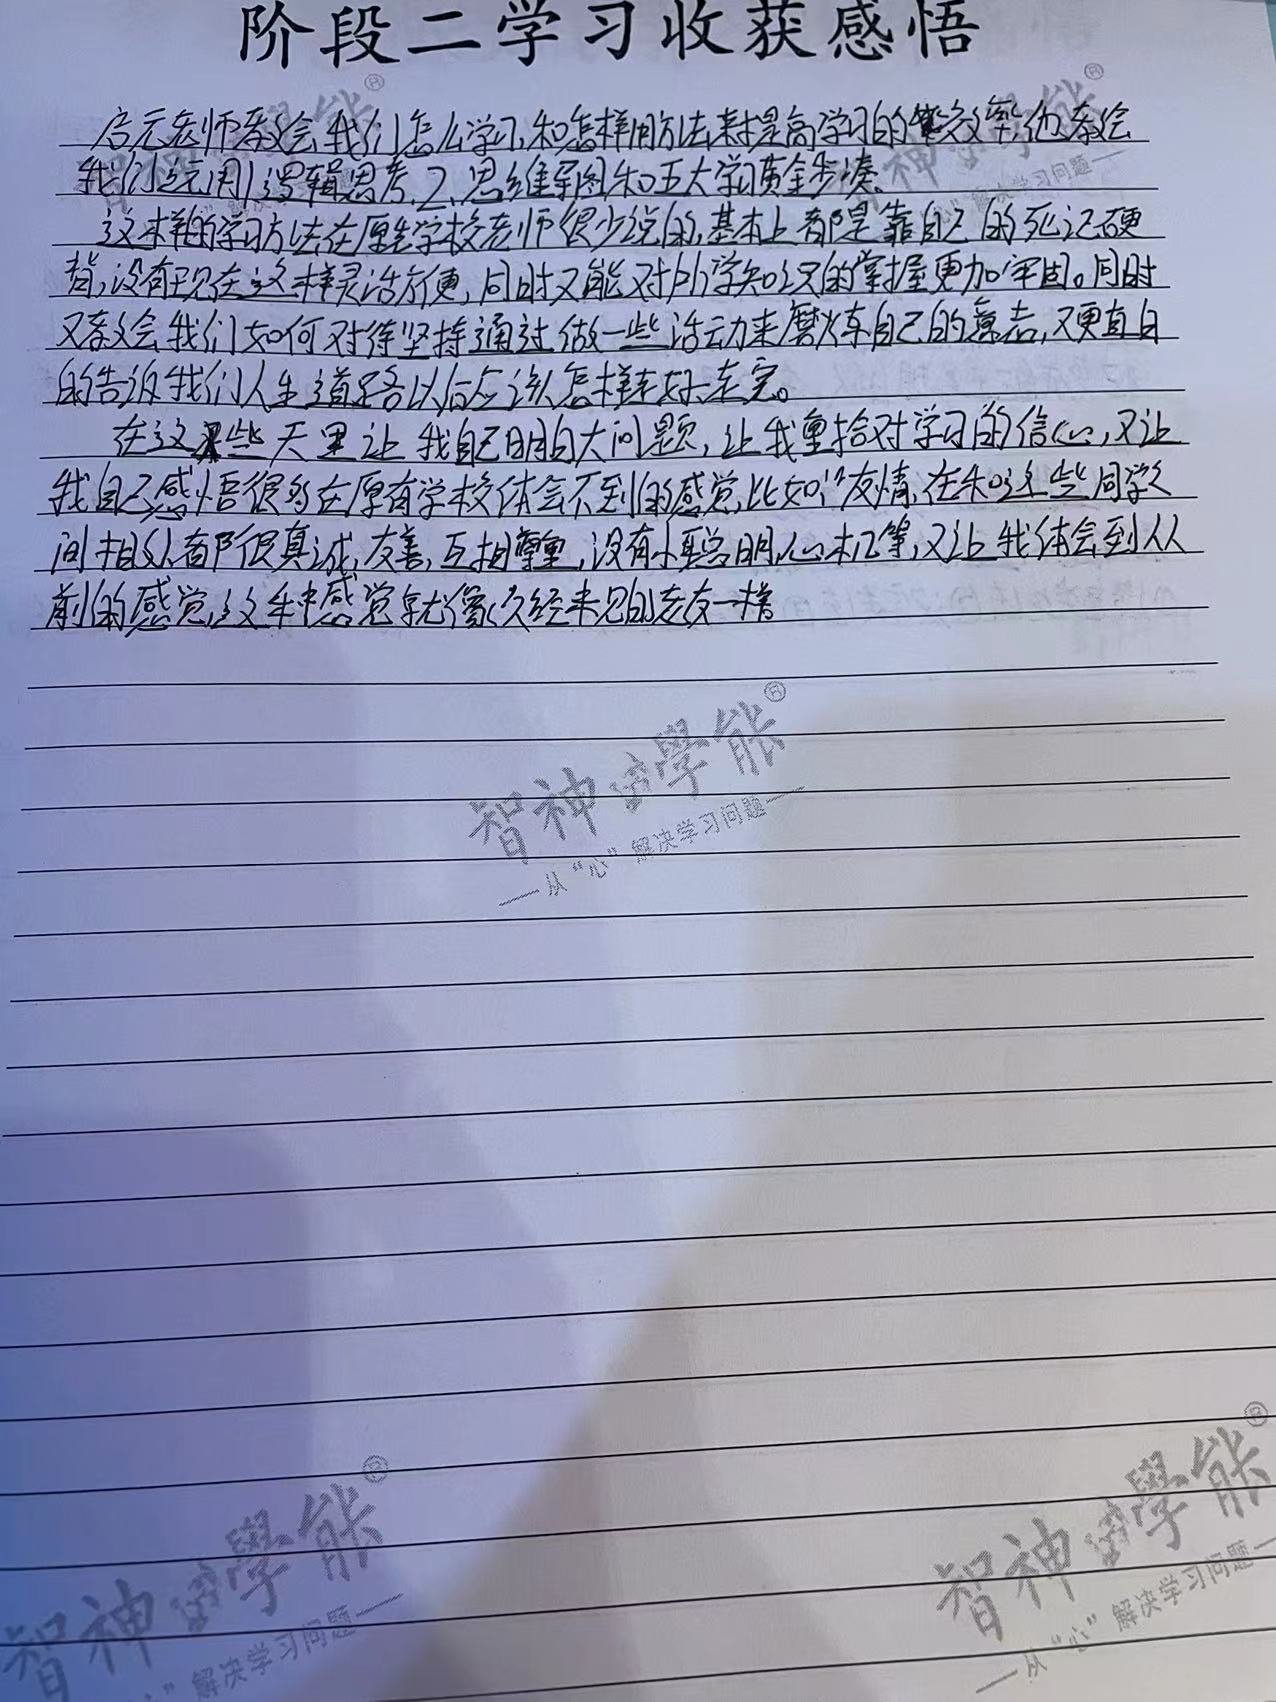 阶段二学习收获感悟
启元老师教会我们怎么学习,和怎样用方法来提高学习的效率他教会
我们运用1逻辑思考,2、思维导图和五大学习黄金步凑、
这样的学习方法在原先学校老师很少说的,基本上都是靠自己的死记硬
背,没有现在这样灵活方便,同时又能对所学知识的掌握更加牢固。同时
又教会我们如何对待坚持通过做一些活动来磨炼自己的意志,又更直白
的告诉我们人生道路以后应该怎样走好走完。
在这些天里让我自己明白大问题,让我重拾对学习的信心,又让
我自己感悟很多在原有学校体会不到的感觉,比如:友情,在和这些同学之
间相处都很真诚,友善,互相尊重,没有小聪明,心机等,又让我体会到从
前的感觉,这种感觉就像久经未见的老友一样
智神学能®
——从“心”解决学习问题——
智神学能®
“心”解决学习问题——
智神学能®
——从“心”解决学习问题—